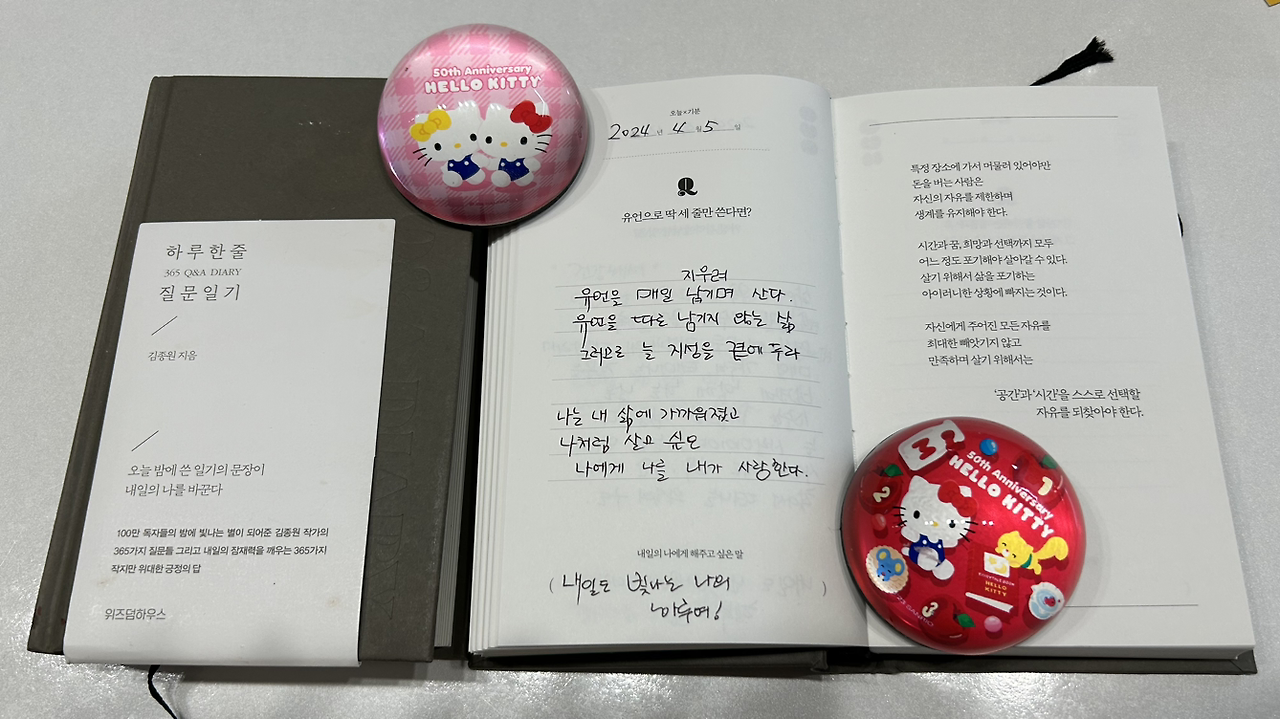 하루 한 줄
365 Q&A DIARY
질문 일기
김종원 지음
오늘 밤에 쓴 일기의 문장이
내일의 나를 바꾼다
100만 독자들의 밤에 빛나는 별이 되어준 김종원 작가의
365가지 질문들 그리고 내일의 잠재력을 깨우는 365가지
작지만 위대한 긍정의 답
위즈덤하우스
50th Anniversary
HELLO KITTY
오늘×기분
2024년 4월 5일
Q
유언으로 딱 세 줄만 쓴다면?
지우려
유언을 매일 남기며 산다.
유언을 따로 남기지 않는 삶
그러므로 늘 지성을 곁에 두라
나는 내 삶에 가까워졌고
나처럼 살고 싶은
나에게 나를 내가 사랑한다.
내일의 나에게 해주고 싶은 말
(내일도 빛나는 나의
하루여!)
특정 장소에 가서 머물러 있어야만
돈을 버는 사람은
자신의 자유를 제한하며
생계를 유지해야 한다.
시간과 꿈, 희망과 선택까지 모두
어느 정도 포기해야 살아갈 수 있다.
살기 위해서 삶을 포기하는
아이러니한 상황에 빠지는 것이다.
자신에게 주어진 모든 자유를
최대한 빼앗기지 않고
만족하며 살기 위해서는
'공간'과 '시간'을 스스로 선택할
자유를 되찾아야 한다.
50th Anniversary
HELLO KITTY
1
2
3
HELLO
KITTY